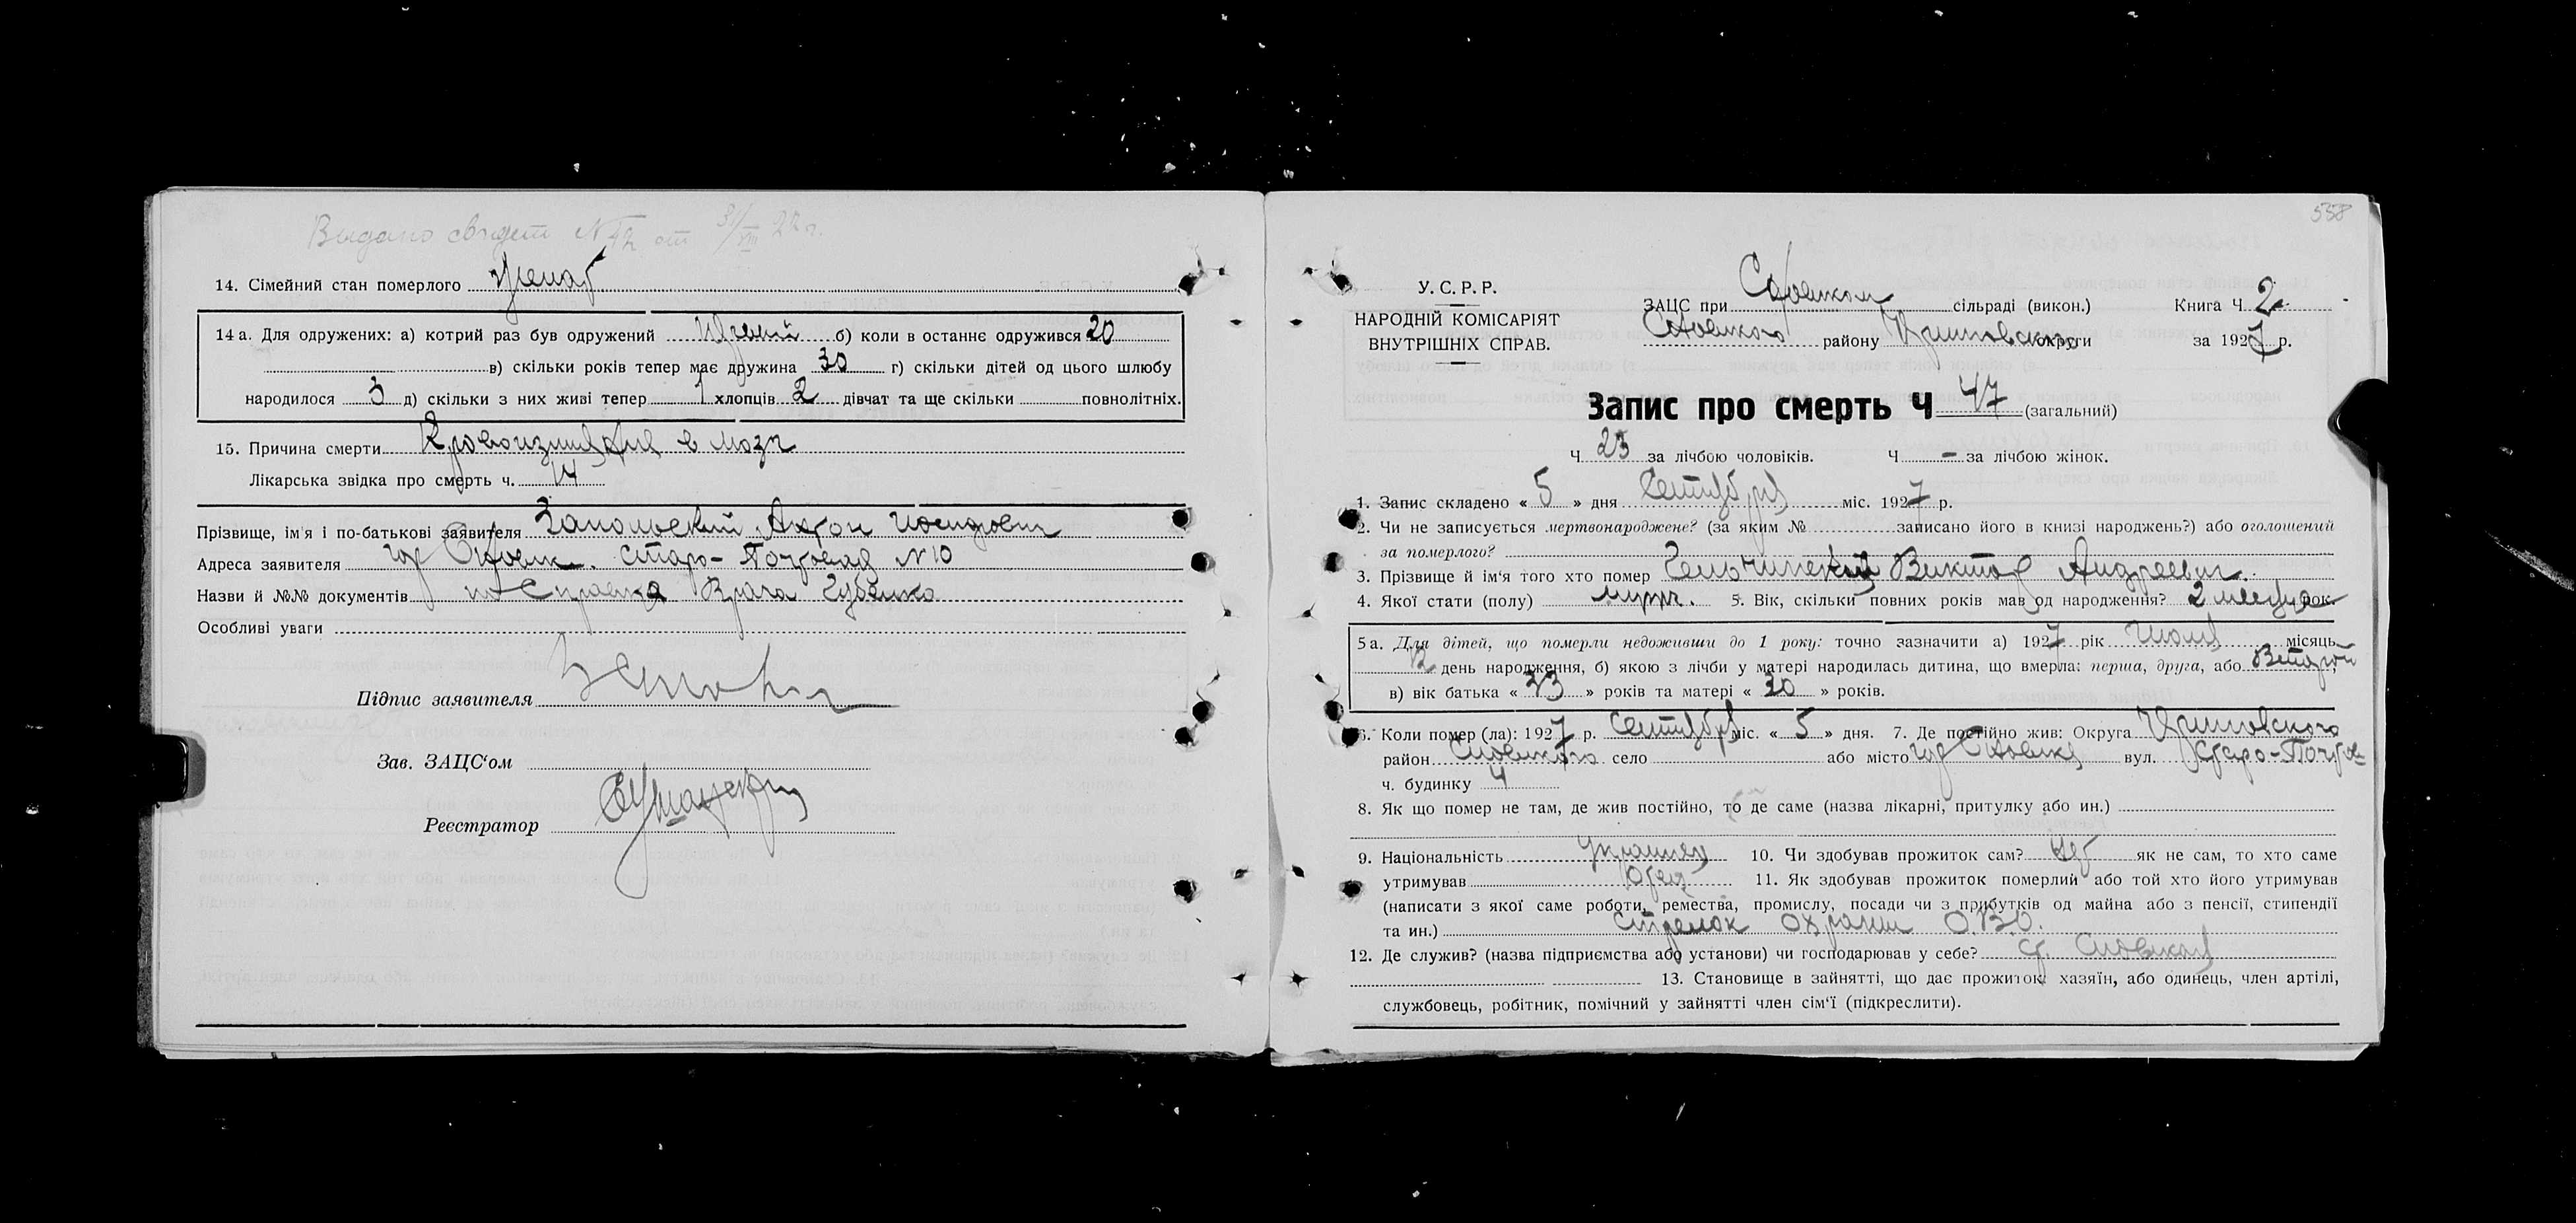 Выдано свидет № 42 от 31/VIII 27 г.
14. Сімейний стан померлого женат
14а. Для одружених: а) котрий раз був одружений первый б) коли в останнє одружився 20
в) скільки років тепер має дружина 30 г) скільки дітей од цього шлюбу
народилося 3 д) скільки з них живі тепер 1 хлопців 2 дівчат та ще скільки повнолітніх.
15. Причина смерти Кровоизлияние в мозг
Лікарська звідка про смерть ч. 14
Прізвище, ім'я і по-батькові заявителя Запольский Антон
Адреса заявителя гор Сновск. Старо-Почтовая № 10
Назви й №№ документів Справка Врача Губенко
Особливі уваги
Підпис заявителя
Зав. ЗАЦС'ом
Реєстратор
558
У. С. Р. Р.
НАРОДНІЙ КОМІСАРІЯТ
ВНУТРІШНІХ СПРАВ.
ЗАЦС при Сновском сільраді (викон.) Книга Ч. 2
Сновского району округи за 1927 р.
Запис про смерть Ч 47 (загальний)
Ч 23 за лічбою чоловіків. Ч. - за лічбою жінок.
1. Запис складено « 5 » дня Сентября міс. 1927 р.
2. Чи не записується мертвонароджене? (за яким № записано його в книзі народжень?) або оголошений
за померлого?
3. Прізвище й ім'я того хто помер Виктор Андреевич
4. Якої стати (полу) мужч. 5. Вік, скільки повних років мав од народження? 2 месяца рок.
5а. Для дітей, що померли недоживши до 1 року: точно зазначити а) 1927 рік Июля місяць
12 день народження, б) якою з лічби у матері народилась дитина, що вмерла: перша, друга, або Второй
в) вік батька « 33 » років та матері « 30 » років.
6. Коли помер (ла): 1927 р. Сентября міс. « 5 » дня. 7. Де постійно жив: Округа
район Сновского село або місто гор Сновск вул. Старо-Почтов
ч. будинку 4
8. Як що помер не там, де жив постійно, то де саме (назва лікарні, притулку або ин.)
9. Національність Украинец 10. Чи здобував прожиток сам? Нет як не сам, то хто саме
утримував Отец 11. Як здобував прожиток померлий або той хто його утримував
(написати з якої саме роботи, ремества, промислу, посади чи з прибутків од майна або з пенсії, стипендії
та ин.) Стрелок охраны О.В.О.
12. Де служив? (назва підприємства або установи) чи господарював у себе? ст. Сновская
13. Становище в зайнятті, що дає прожиток: хазяїн, або одинець, член артілі,
службовець, робітник, помічний у зайнятті член сім'ї (підкреслити).